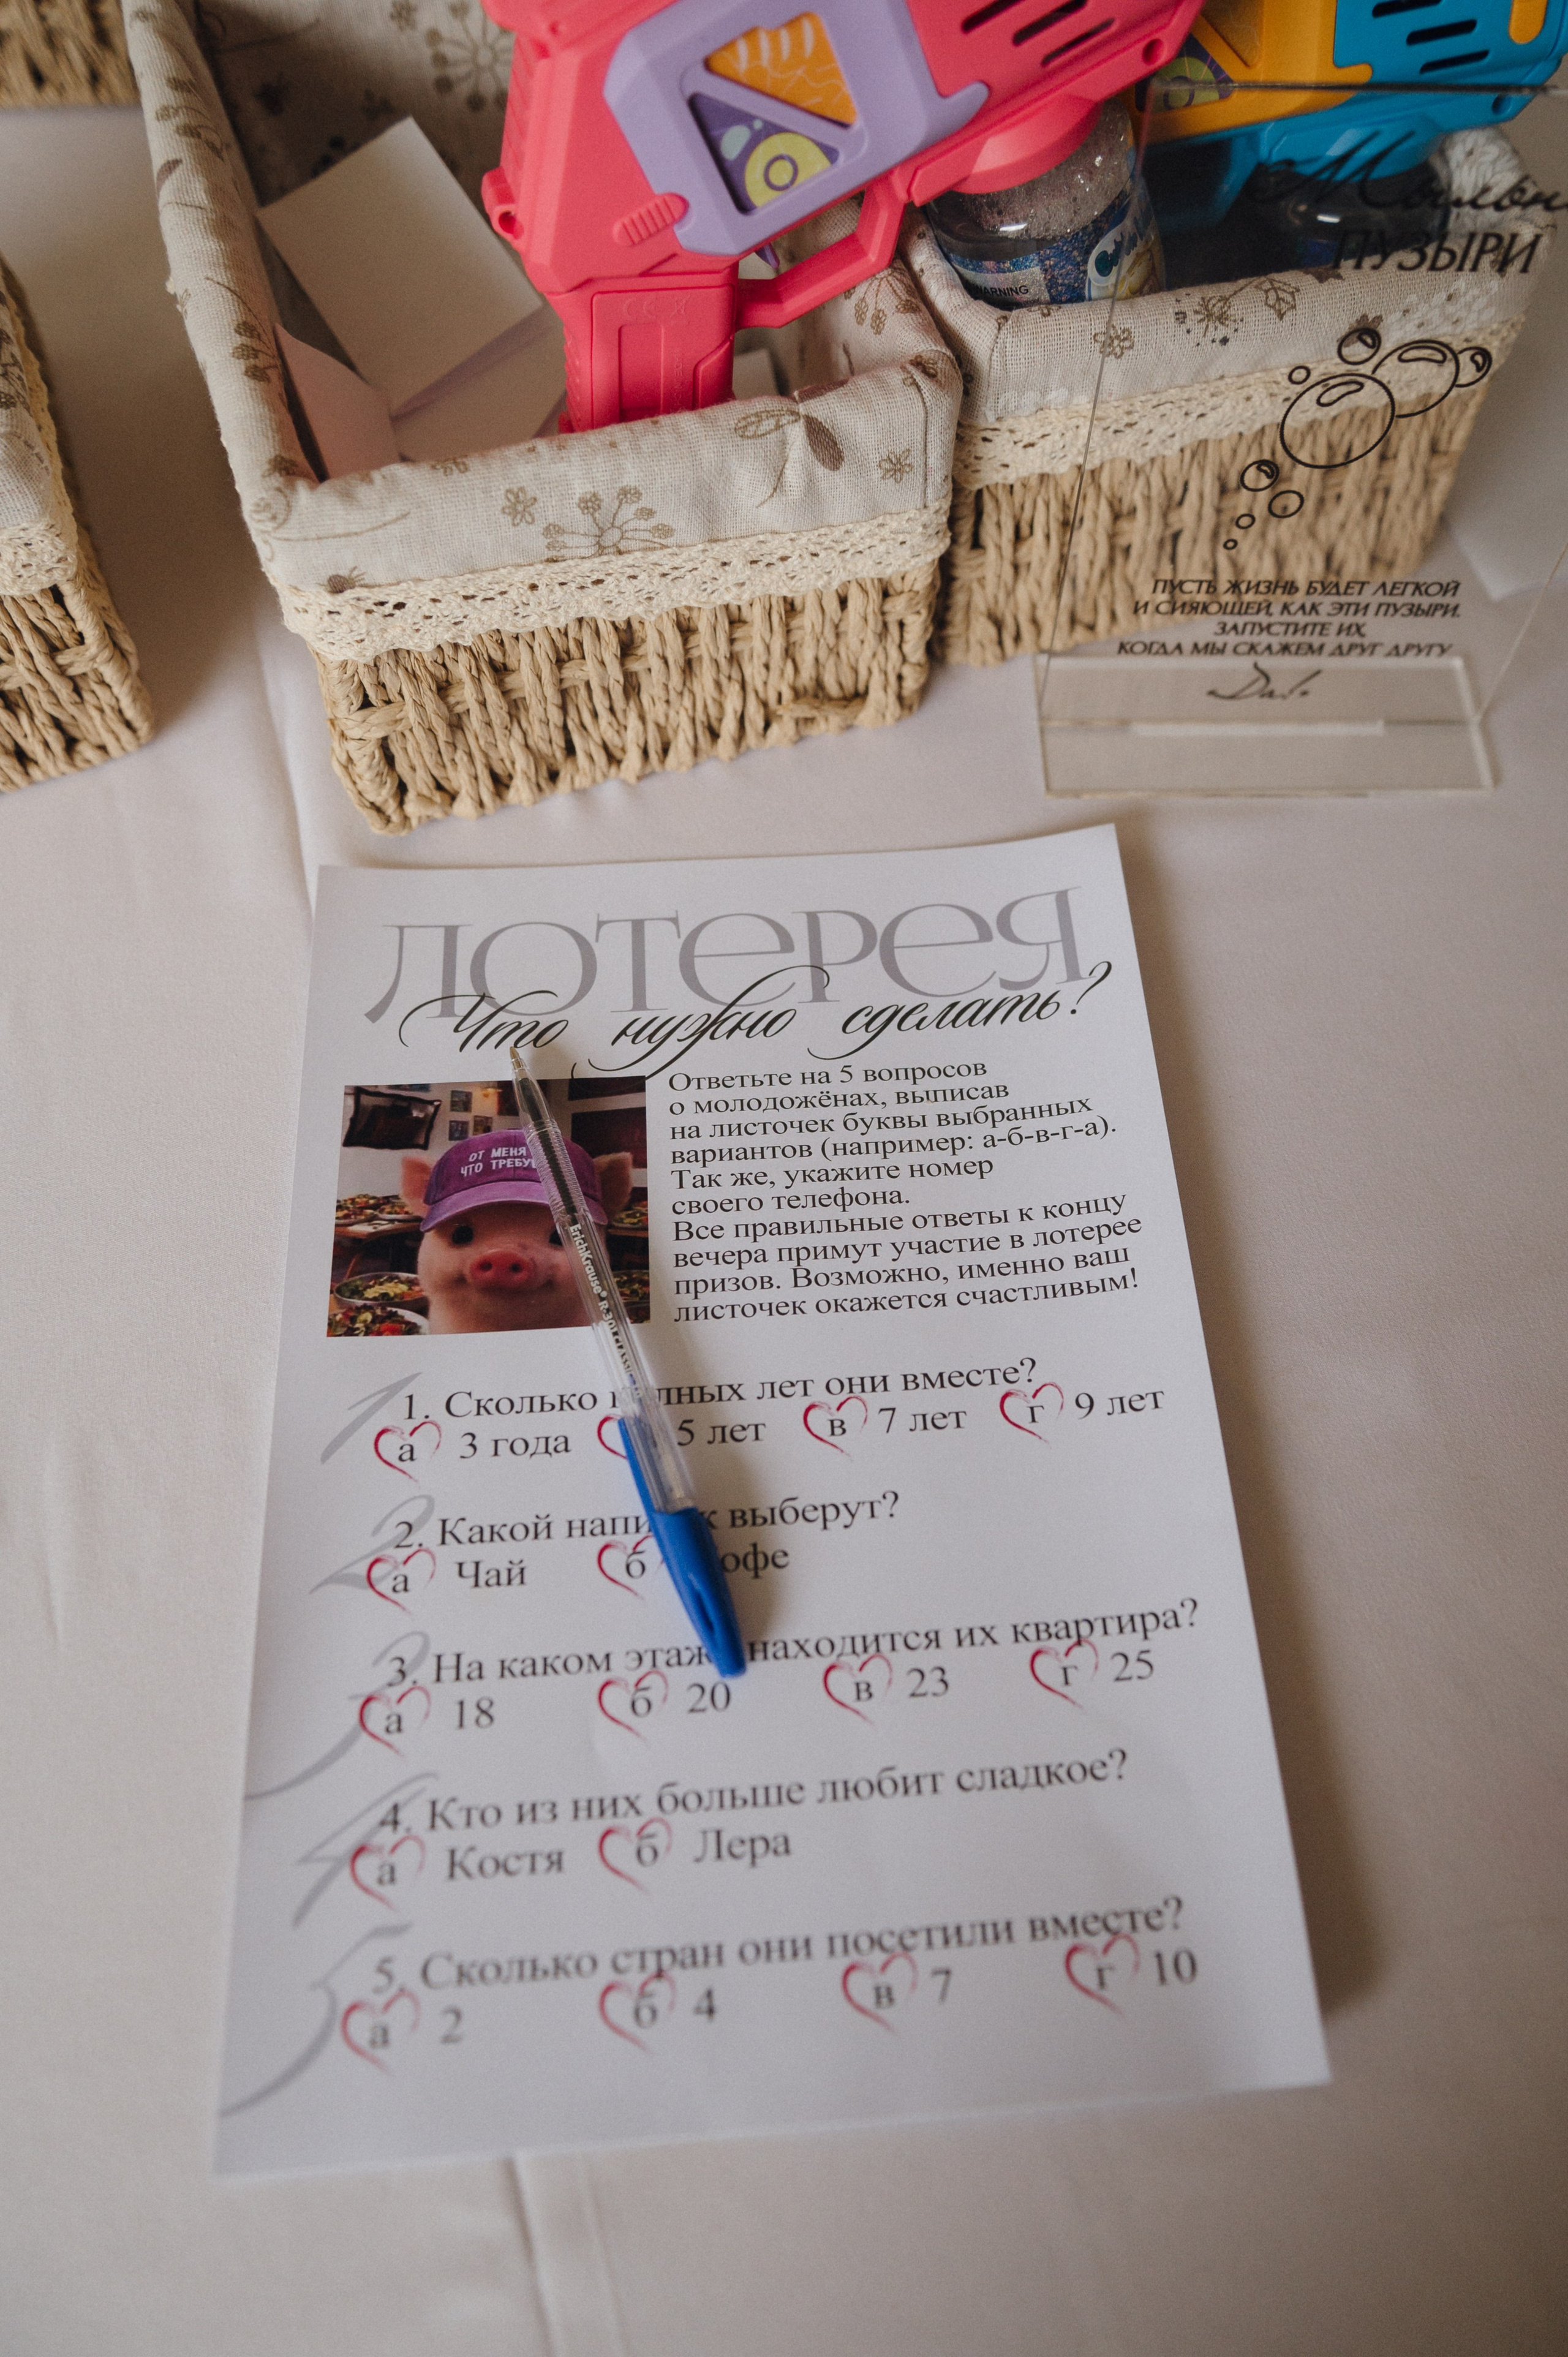 WARNING
Мыльн
ПУЗЫРИ
ПУСТЬ ЖИЗНЬ БУДЕТ ЛЕГКОЙ
И СИЯЮЩЕЙ, КАК ЭТИ ПУЗЫРИ.
ЗАПУСТИТЕ ИХ,
КОГДА МЫ СКАЖЕМ ДРУГ ДРУГУ
Да!
ЛОТЕРЕЯ
Что нужно сделать?
ОТ МЕНЯ
ЧТО ТРЕБУ
Ответьте на 5 вопросов
о молодожёнах, выписав
на листочек буквы выбранных
вариантов (например: а-б-в-г-а).
Так же, укажите номер
своего телефона.
Все правильные ответы к концу
вечера примут участие в лотерее
призов. Возможно, именно ваш
листочек окажется счастливым!
ErichKrause® R-301 CLASSIC
1
1. Сколько лных лет они вместе?
а 3 года 5 лет в 7 лет г 9 лет
2
2. Какой напи к выберут?
а Чай б офе
3
3. На каком этаж находится их квартира?
а 18 б 20 в 23 г 25
4
4. Кто из них больше любит сладкое?
а Костя б Лера
5
5. Сколько стран они посетили вместе?
а 2 б 4 в 7 г 10